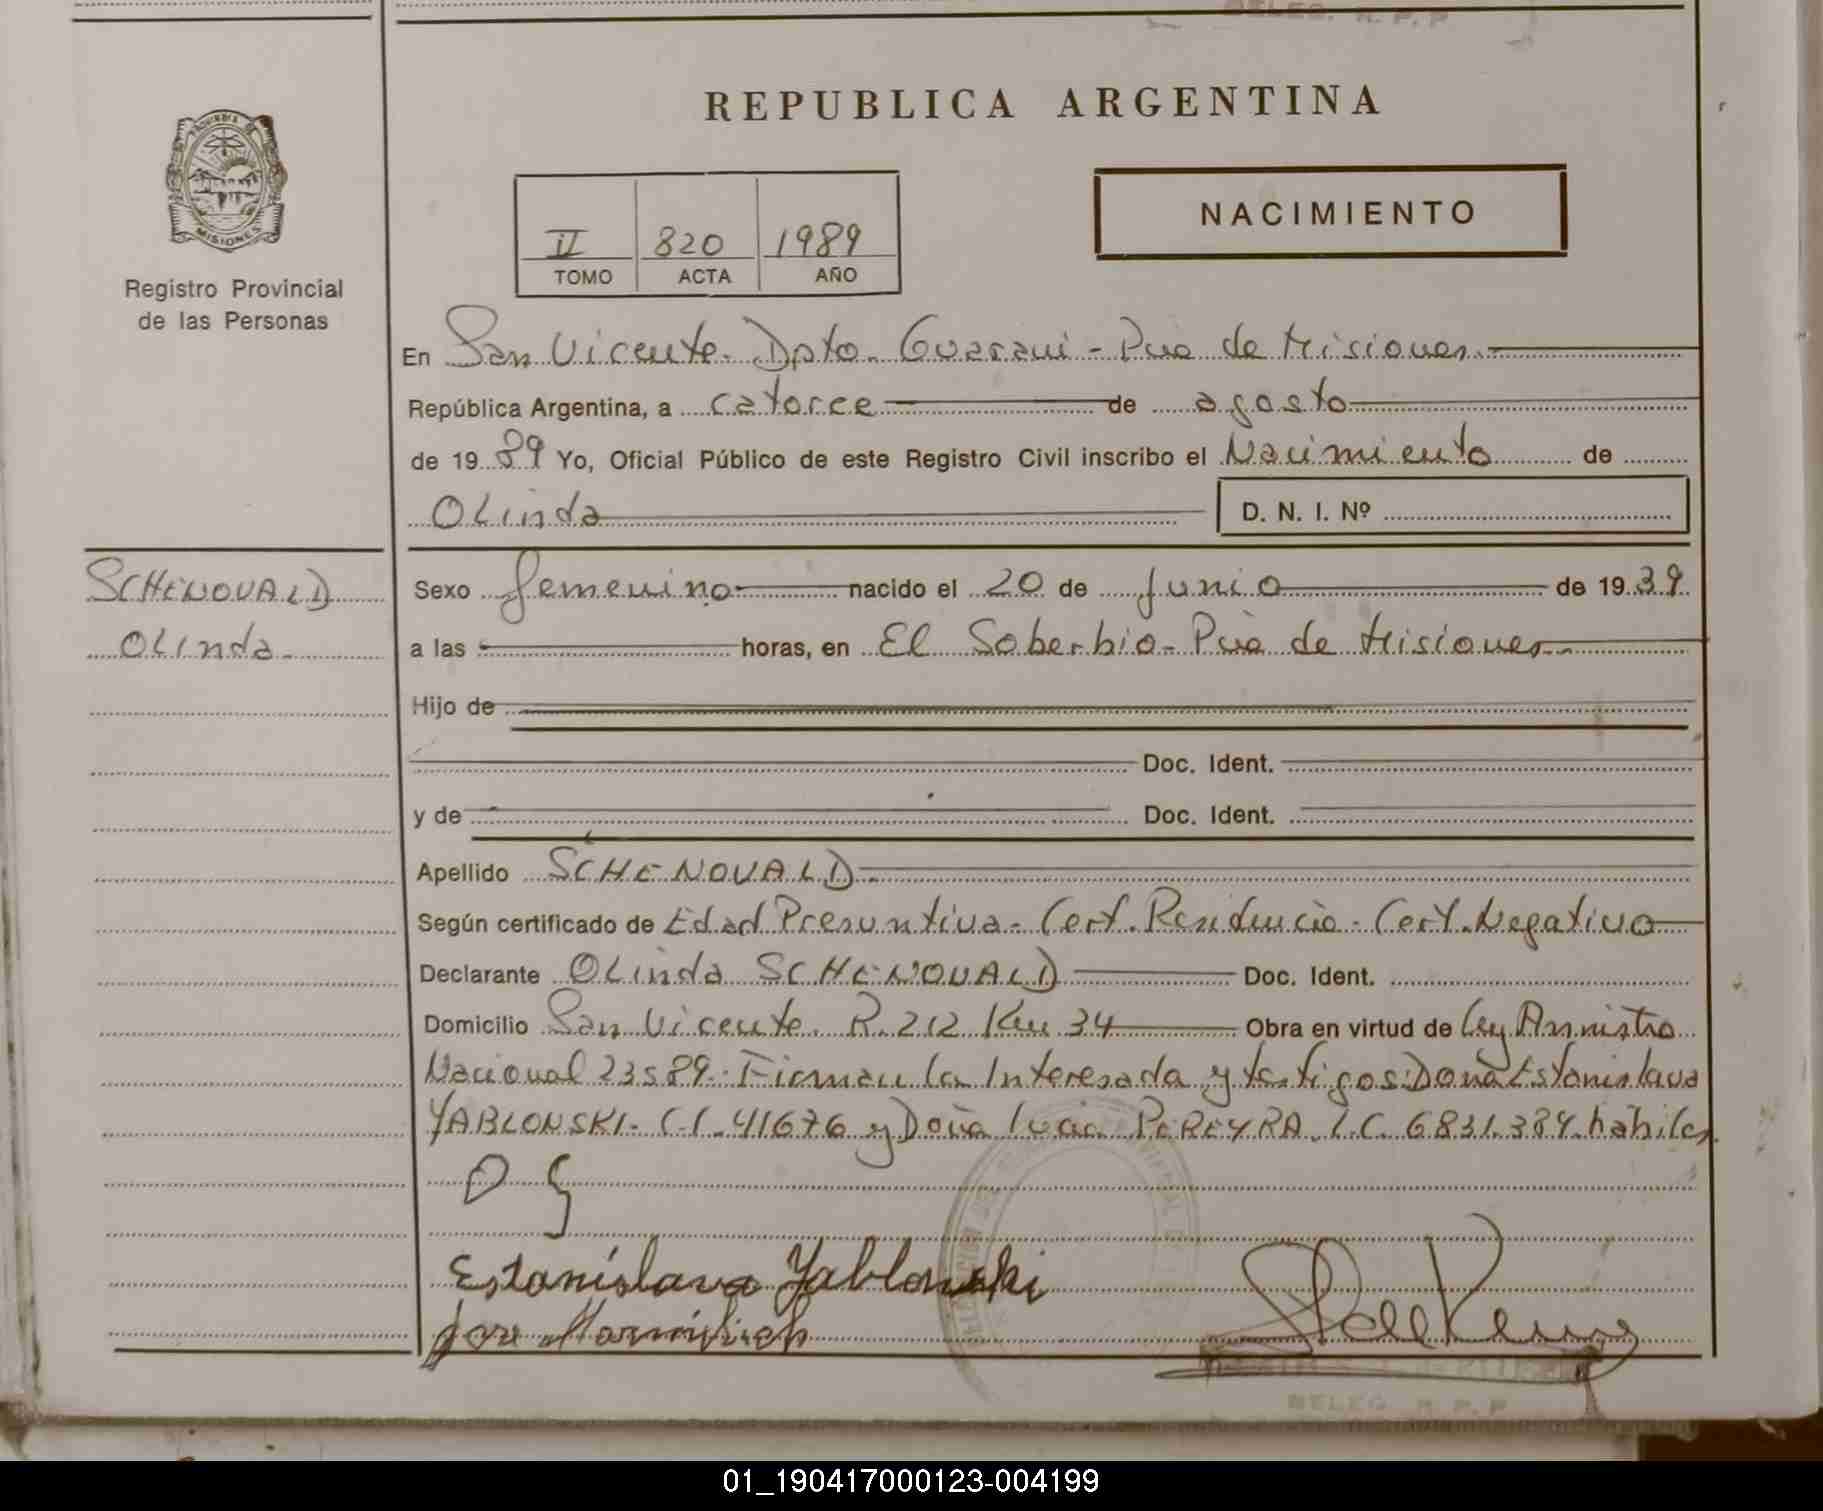 REPUBLICA ARGENTINA
PROVINCIA DE
MISIONES
Registro Provincial
de las Personas
II 820 1989
TOMO ACTA AÑO
NACIMIENTO
En San Vicente. Dpto. Guarani - Pcia de Misiones.
República Argentina, a catorce de agosto
de 1989 Yo, Oficial Público de este Registro Civil inscribo el Nacimiento de
Olinda D. N. I. Nº
SCHENOVALD
Olinda
Sexo femenino nacido el 20 de junio de 1939
a las horas, en El Soberbio - Pcia de Misiones
Hijo de
Doc. Ident.
y de Doc. Ident.
Apellido SCHENOVALD.
Según certificado de Edad Presuntiva - Cert. Residencia - Cert. Negativo
Declarante Olinda SCHENOVALD Doc. Ident.
Domicilio San Vicente. R. 212 Km 34 Obra en virtud de Ley Amnistia
Nacional 23589. Firman la Interesada y testigos: Dona Estanislava
YABLONSKI - C.I. 41676 y Doña PEREYRA. L.C. 6831.384 habiles
O S
Estanislava Yablonski
DELEG. R. P. P
01_190417000123-004199